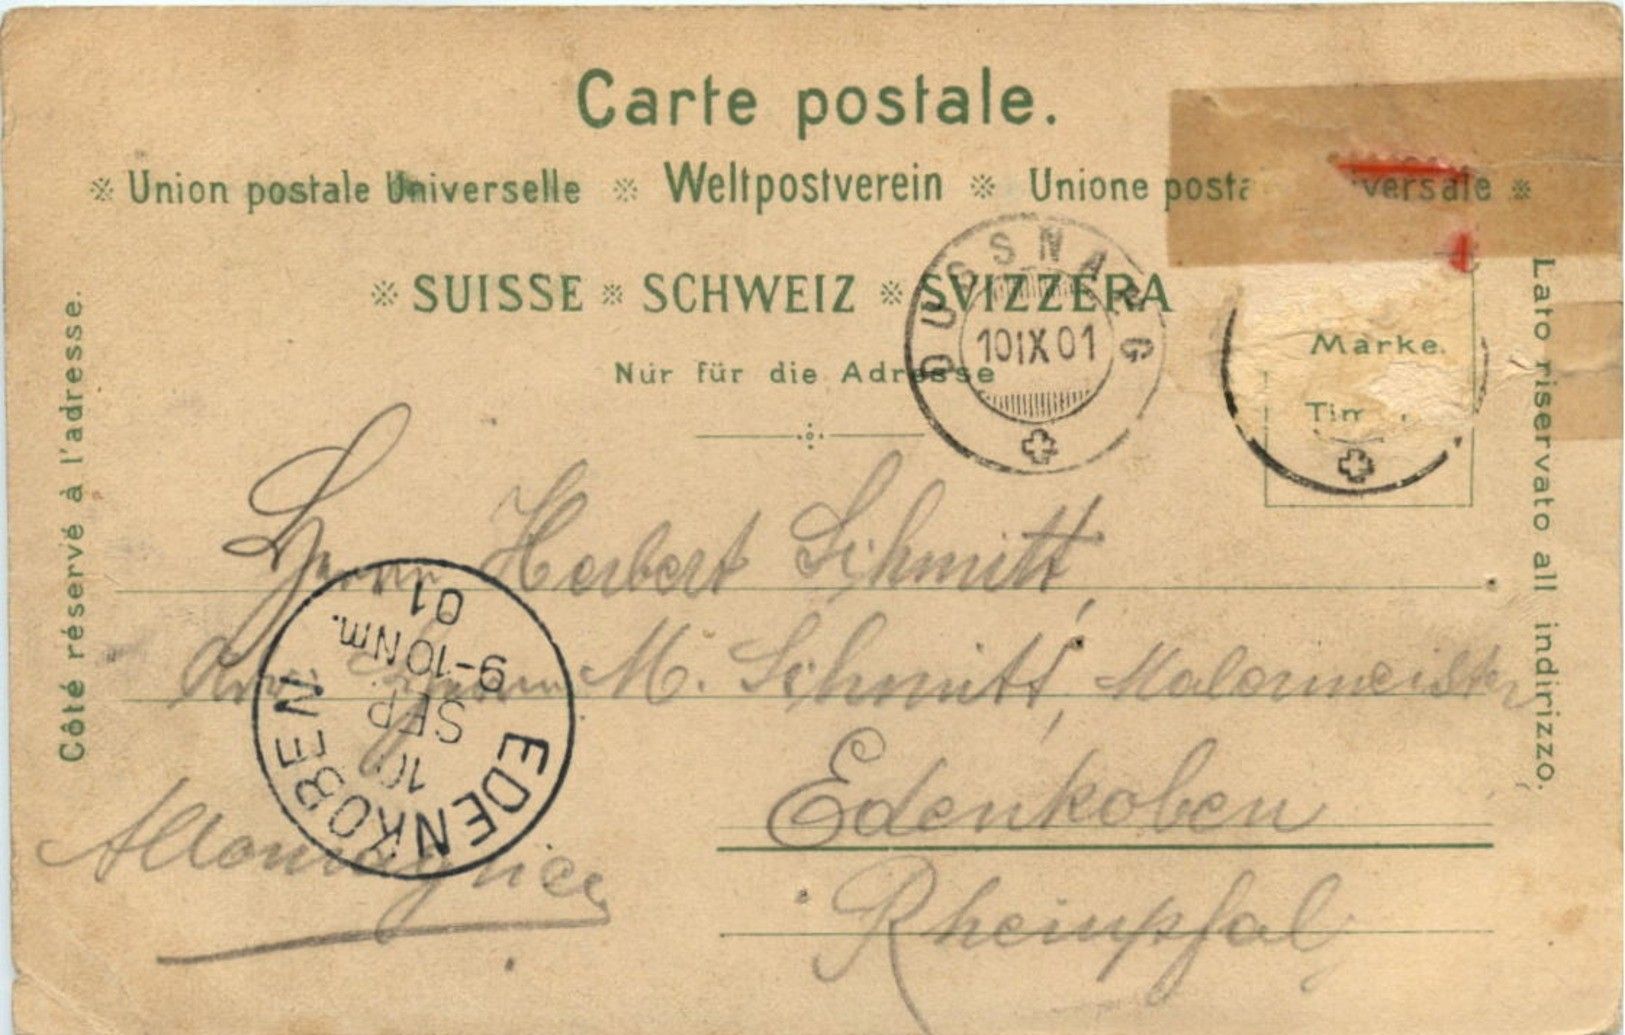 Carte postale.
※ Union postale Universelle ※ Weltpostverein ※ Unione posta versale ※
※ SUISSE ※ SCHWEIZ ※ SVIZZERA
Nur für die Adresse
Côté réservé à l'adresse.
Lato riservato all indirizzo.
DUSSNANG
10 IX 01
Marke.
Tim
Herrn Herbert Schmitt,
M. Schmitt, Malermeister
Edenkoben
Rheinpfal
EDENKOBEN
10 SEP.
9-10 Nm.
01